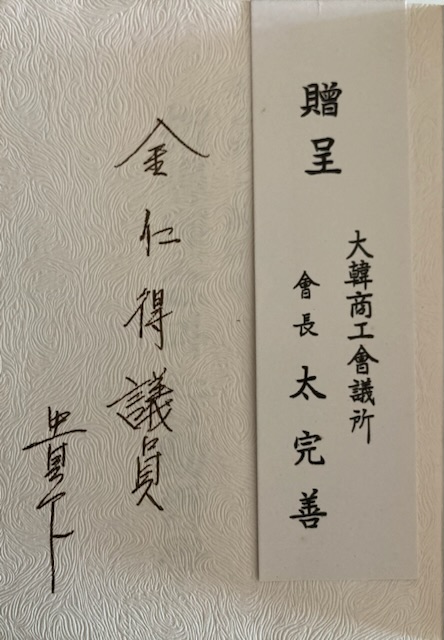 贈呈
大韓商工會議所
會長 太完善
金仁得議員
貴下